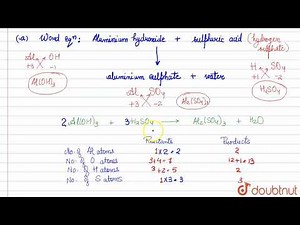 (a) Word Eqn: Aluminium hydroxide + sulphuric acid (hydrogen sulphate)
Al OH
+3 -1
Al(OH)3
H SO4
+1 -2
H2SO4
aluminium sulphate + water
Al SO4
+3 -2
Al2(SO4)3
2Al(OH)3 + 3H2SO4 → Al2(SO4)3 + H2O
Reactants Products
No. of Al atoms 1×2=2 2
No. of O atoms
No. of H atoms 3+2=5 2
No. of S atoms 1×3=3 3
doubtnut